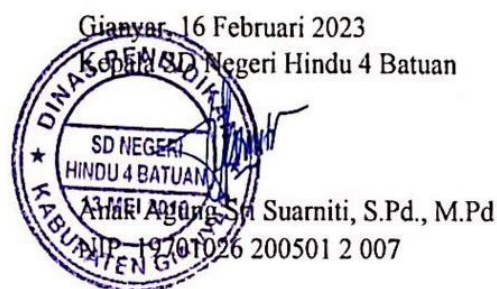 Gianyar, 16 Februari 2023
Kepala SD Negeri Hindu 4 Batuan
DINAS PENDIDIKAN
SD NEGERI
HINDU 4 BATUAN
13 MEI 2010
KABUPATEN GIANYAR
Anak Agung Sri Suarniti, S.Pd., M.Pd
NIP. 19701026 200501 2 007